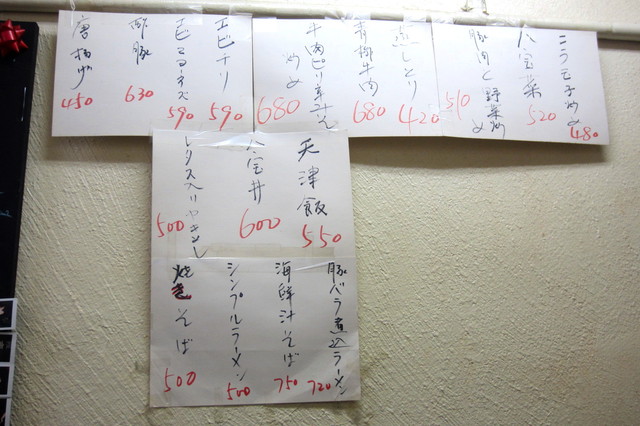 ニラ玉子炒め
480
八宝菜
520
豚肉と野菜炒め
510
蒸しとり
420
青椒牛肉
680
牛肉ピリ辛みそ炒め
680
エビチリ
590
エビマヨネーズ
590
酢豚
630
唐揚げ
450
天津飯
550
八宝丼
600
レタス入りやきめし
500
豚バラ煮込ラーメン
720
海鮮汁そば
750
シンプルラーメン
500
焼きそば
500